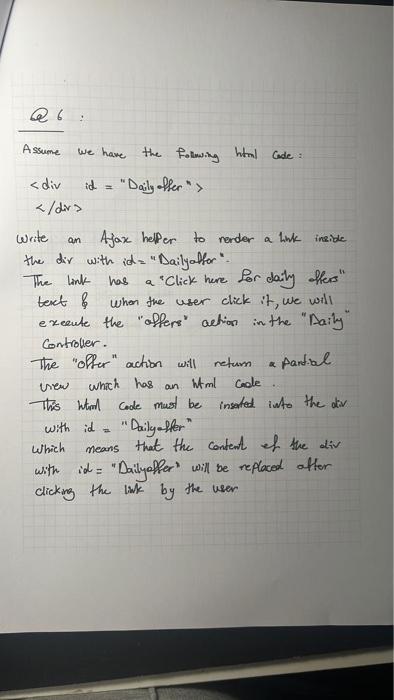 Q 6 :
Assume we have the following html Code :
<div id = "Dailyoffer">
</div>
Write an Ajax helper to render a link inside
the div with id = "Dailyoffer".
The link has a "Click here for daily offers"
text & when the user click it, we will
execute the "offers" action in the "Daily"
Controller.
The "offer" action will return a partial
view which has an html Code .
This html Code must be inserted into the div
with id = "Dailyoffer"
Which means that the content of the div
with id = "Dailyoffer" will be replaced after
clicking the link by the user